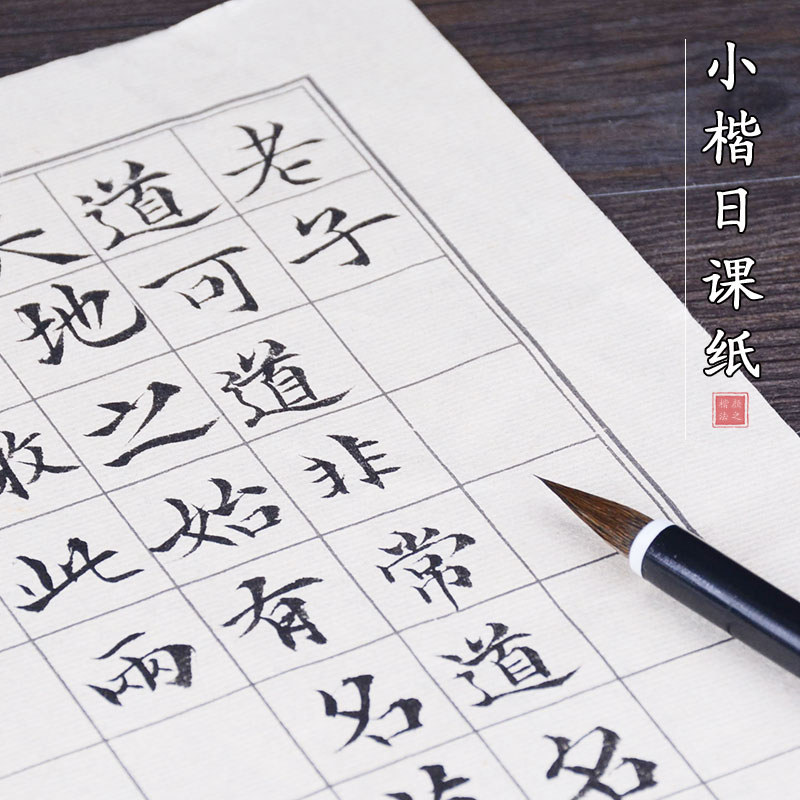 小楷日课纸
颜之
楷法
老子
道可道非常道名
地之始有名
此兩